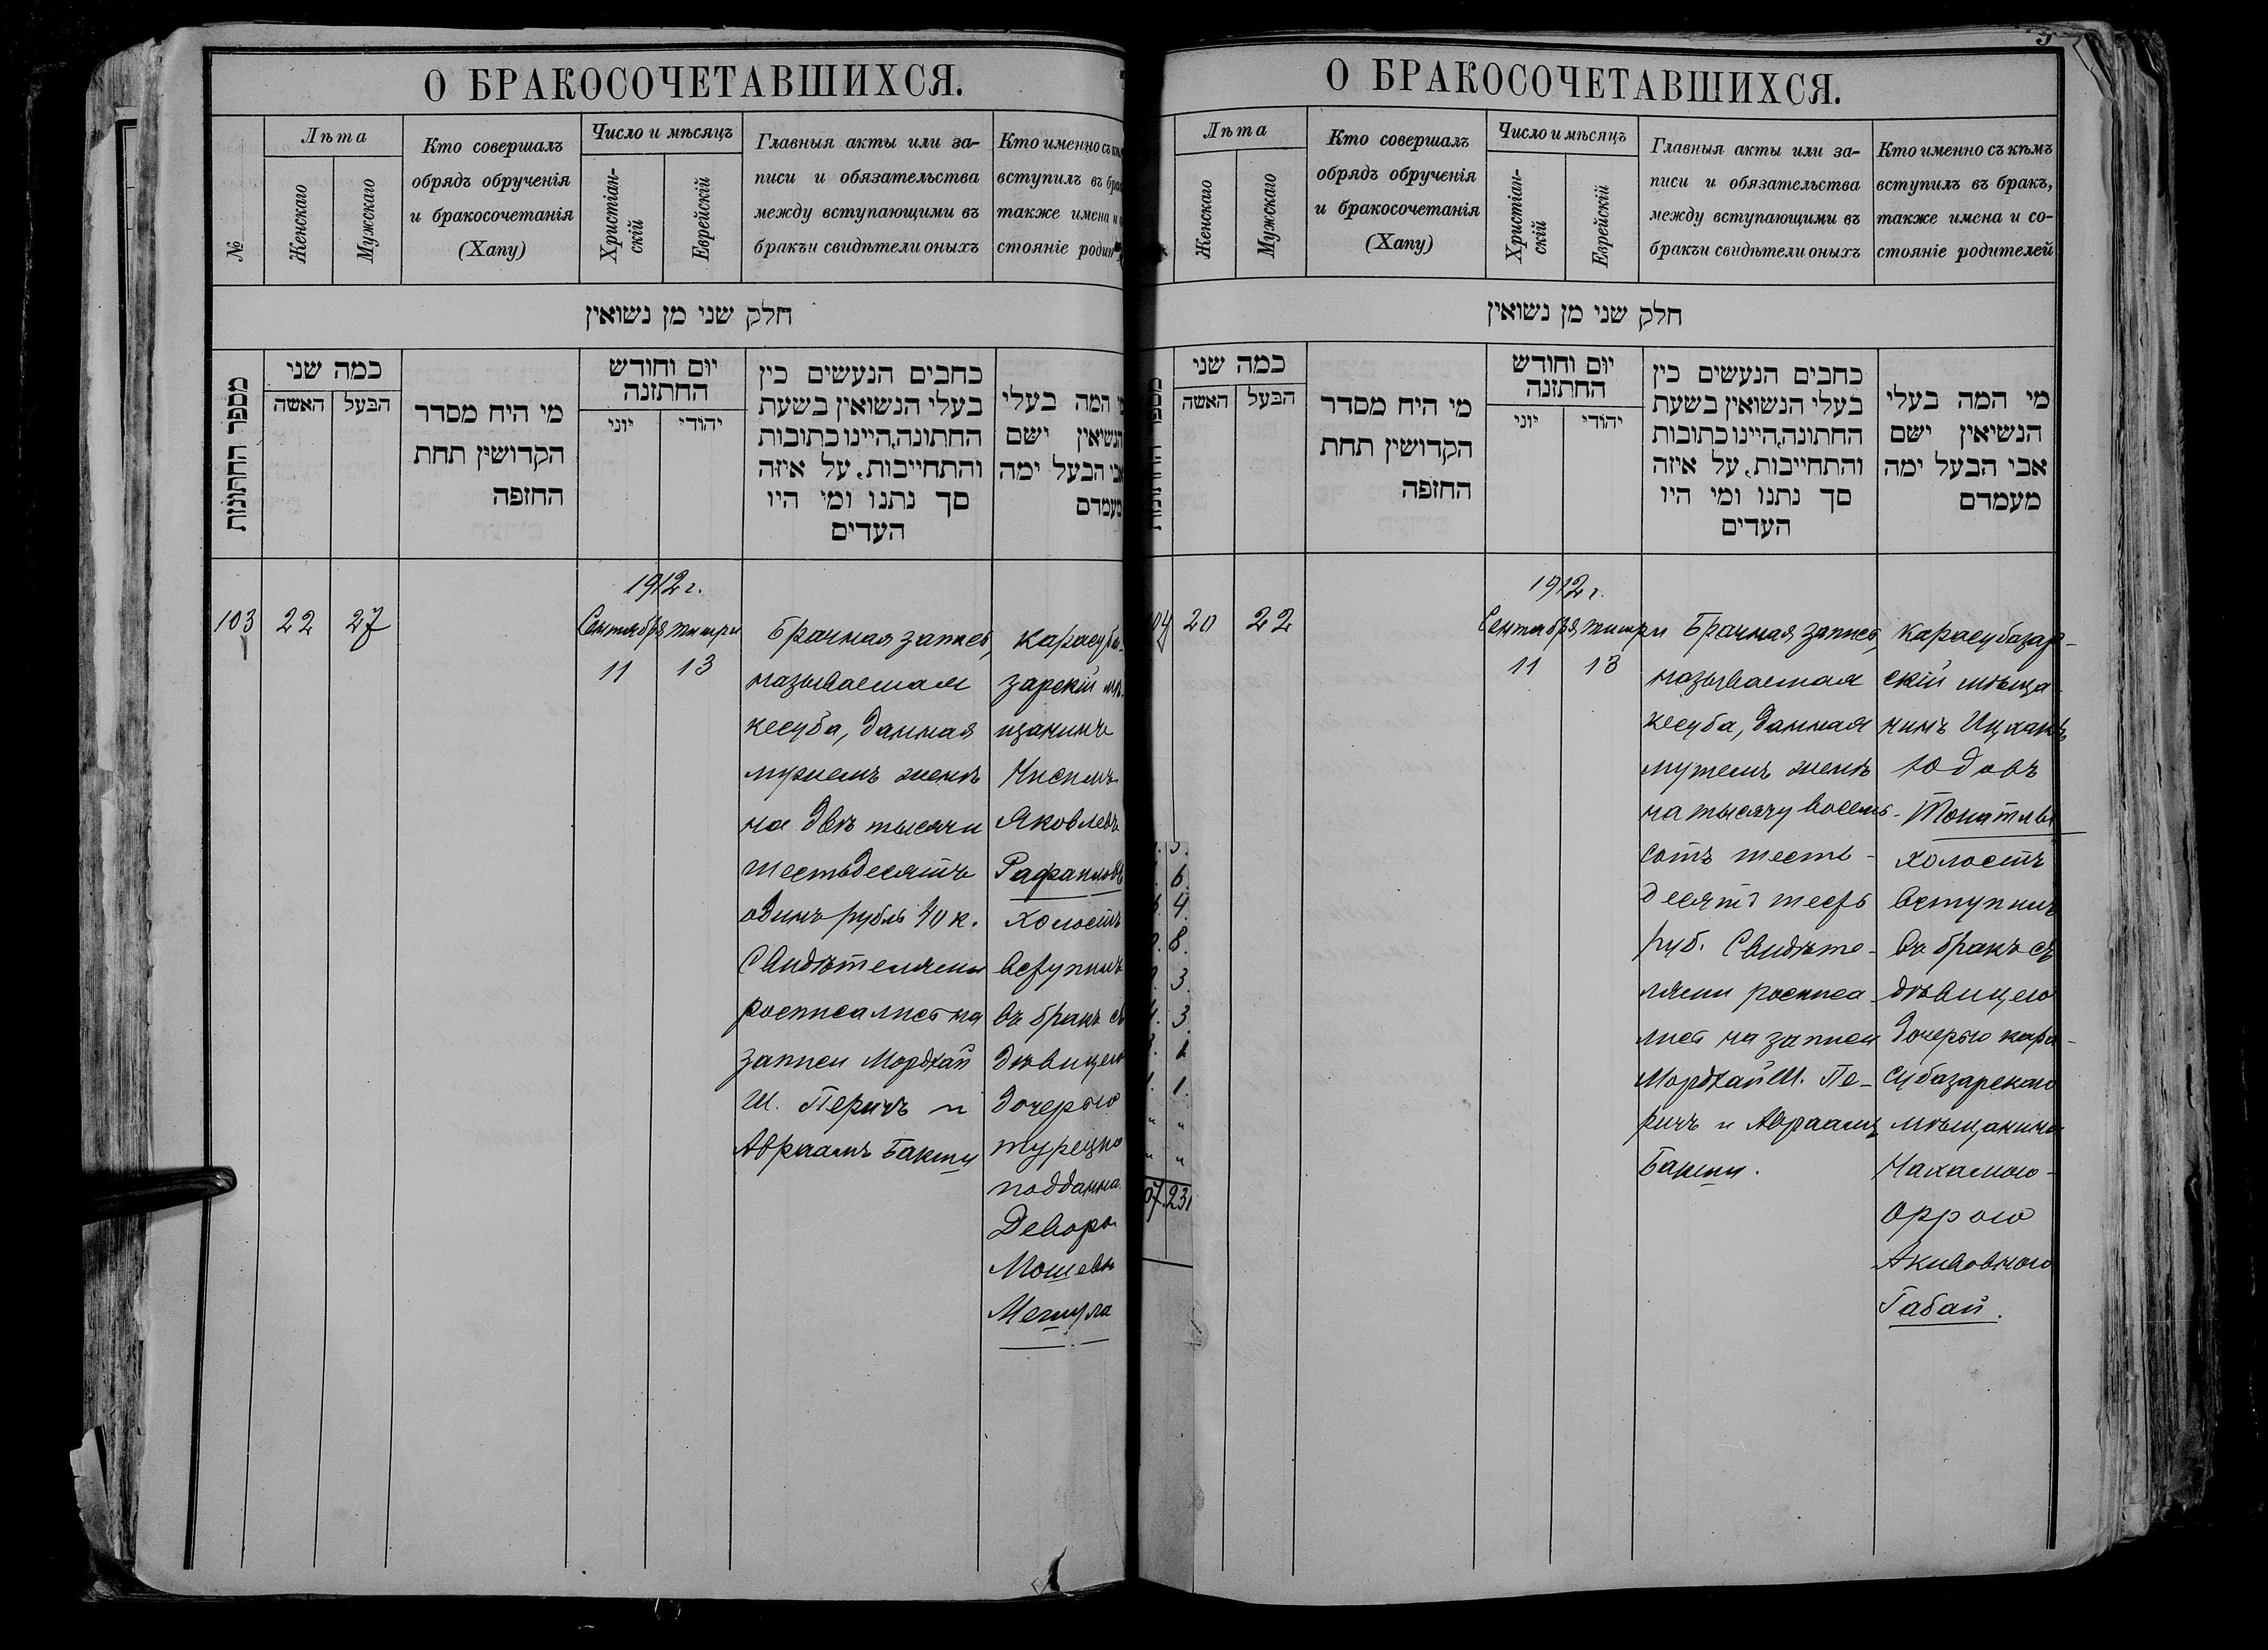 О БРАКОСОЧЕТАВШИХСЯ.
№
Лѣта
Женскаго
Мужскаго
Кто совершалъ
обрядъ обрученія
и бракосочетанія
(Хапу)
Число и мѣсяцъ
Христіан-
скій
Еврейскій
Главныя акты или за-
писи и обязательства
между вступающими въ
бракъи свидѣтели оныхъ
Кто именно съ
вступилъ въ
также имена и
стояніе
חלק שני מן נשואין
מספר החתונות
כמה שני
האשה
הבעל
מי היח מסדר
הקדושין תחת
החזפה
יום וחודש
החתזנה
יוני
יהודי
כחבים הנעשים כין
בעלי הנשואין בשעת
החתונה,היינו כתובות
והתחייבות, על איזה
סך נתנו ומי היו
העדים
המה בעלי
הנשיאין ישם
אבי הבעל ימה
מעמדם
103
22
27
1912 г.
Сентября
тишри
11
13
Брачная запись,
называемая
кесуба, данная
мужемъ женѣ
на двѣ тысячи
шестьдесятъ
одинъ рубль 40 к.
Свидѣтелями
росписались на
записи Мордхай
Ш. Перичъ и
Авраамъ Бакши
Карасуба-
зарскій мѣ-
щанинъ
Нисимъ
Яковлевъ
Рафаиловъ
холостъ
вступилъ
въ бракъ съ
дѣвицею
дочерью
турецко
подданна
Девора
Мошевн
Мешула
О БРАКОСОЧЕТАВШИХСЯ.
Лѣта
Женскаго
Мужскаго
Кто совершалъ
обрядъ обрученія
и бракосочетанія
(Хапу)
Число и мѣсяцъ
Христіан-
скій
Еврейскій
Главныя акты или за-
писи и обязательства
между вступающими въ
бракъи свидѣтели оныхъ
Кто именно съ кѣмъ
вступилъ въ бракъ,
также имена и со-
стояніе родителей
חלק שני מן נשואין
כמה שני
האשה
הבעל
מי היח מסדר
הקדושין תחת
החזפה
יום וחודש
החתזנה
יוני
יהודי
כחבים הנעשים כין
בעלי הנשואין בשעת
החתונה,היינו כתובות
והתחייבות, על איזה
סך נתנו ומי היו
העדים
מי המה בעלי
הנשיאין ישם
אבי הבעל ימה
מעמדם
20
22
1912 г.
Сентября
тишри
11
13
Брачная запись,
называемая
кесуба, данная
мужемъ женѣ
на тысячу восемь-
сотъ шесть-
десятъ шесть
руб. Свидѣте-
лями росписа-
лись на записи
Мордхай Ш. Пе-
ричъ и Авраамъ
Бакши.
Карасубазар-
скій мѣща-
нинъ Ицхакъ
Юдовъ
Токатлы
холостъ
вступилъ
въ бракъ съ
дѣвицею
дочерью кара-
субазарскаго
мѣщанина
Нахамою-
Оррою
Акивовною
Габай.
6.
4.
8.
3.
3.
1.
231